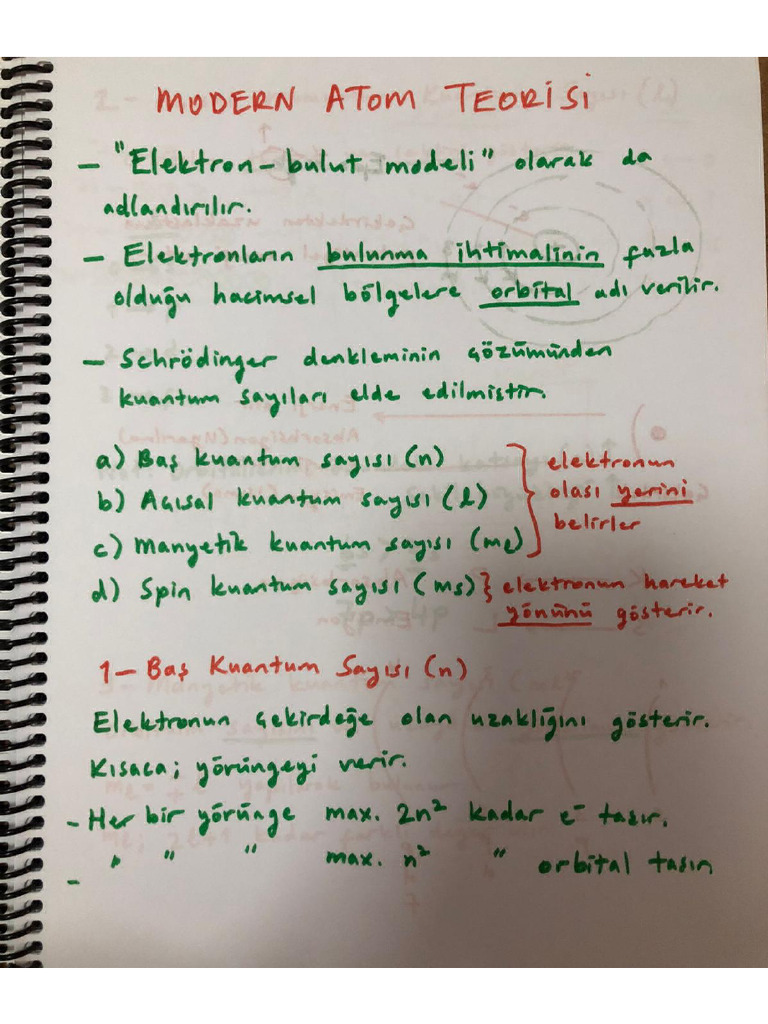 MODERN ATOM TEORİSİ
- "Elektron-bulut modeli" olarak da
adlandırılır.
- Elektronların bulunma ihtimalinin fazla
olduğu hacimsel bölgelere orbital adı verilir.
- Schrödinger denkleminin çözümünden
kuantum sayıları elde edilmiştir.
a) Baş kuantum sayısı (n)
b) Açısal kuantum sayısı (l)
c) Manyetik kuantum sayısı (ml)
elektronun
olası yerini
belirler
d) Spin kuantum sayısı (ms) } elektronun hareket
yönünü gösterir.
1- Baş Kuantum Sayısı (n)
Elektronun çekirdeğe olan uzaklığını gösterir.
Kısaca; yörüngeyi verir.
- Her bir yörünge max. 2n² kadar e⁻ taşır.
- " " " max. n² " orbital taşır